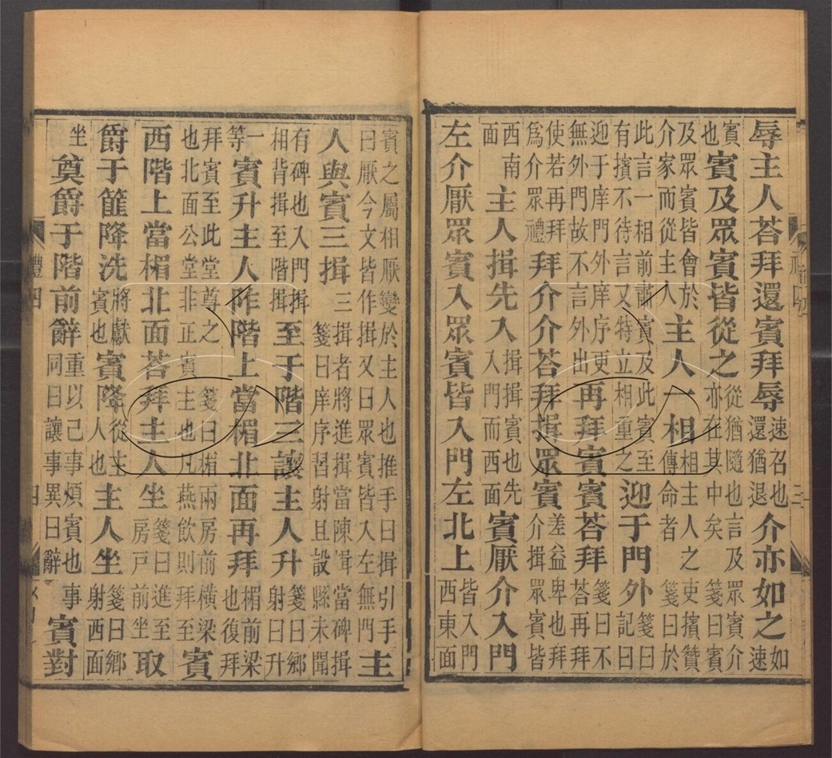 辱主人荅拜還賓拜辱速召也還猶退介亦如之如速
賓也賓及眾賓皆從之從猶隨也言及眾賓介亦在其中矣箋曰賓
及眾賓皆會於介家而從主人主人一相相主人之吏擯贊傳命者箋曰於
此言一相前肅賓及此賓至有擯不待言又特立相重之迎于門外箋曰記曰
迎于庠門外庠序更無外門故不言外出再拜賓賓荅拜箋曰不荅再拜
使若再拜為介眾禮拜介介荅拜揖眾賓差益卑也拜介揖眾賓皆
西南面主人揖先入揖揖賓也先入門而西面賓厭介入門
左介厭眾賓入眾賓皆入門左北上皆入門西東面
賓之屬相厭變於主人也推手曰揖引手曰厭今文皆作揖又曰眾賓皆入左無門主
人與賓三揖三揖者將進揖當陳揖當碑揖箋曰庠序習射且設縣未聞
有碑也入門揖相背揖至階揖至于階三讓主人升箋曰鄉射曰升
一等賓升主人阼階上當楣北面再拜楣前梁也復拜
拜賓至此堂尊之箋曰楣兩房前橫梁也北面公堂非正賓主也凡燕飲則拜至賓
西階上當楣北面荅拜主人坐箋曰進至房戶前坐取
爵于篚降洗將獻賓也賓降從主人也主人坐箋曰鄉射西面
坐奠爵于階前辭重以己事煩賓也事同曰讓事異曰辭賓對
禮四
四